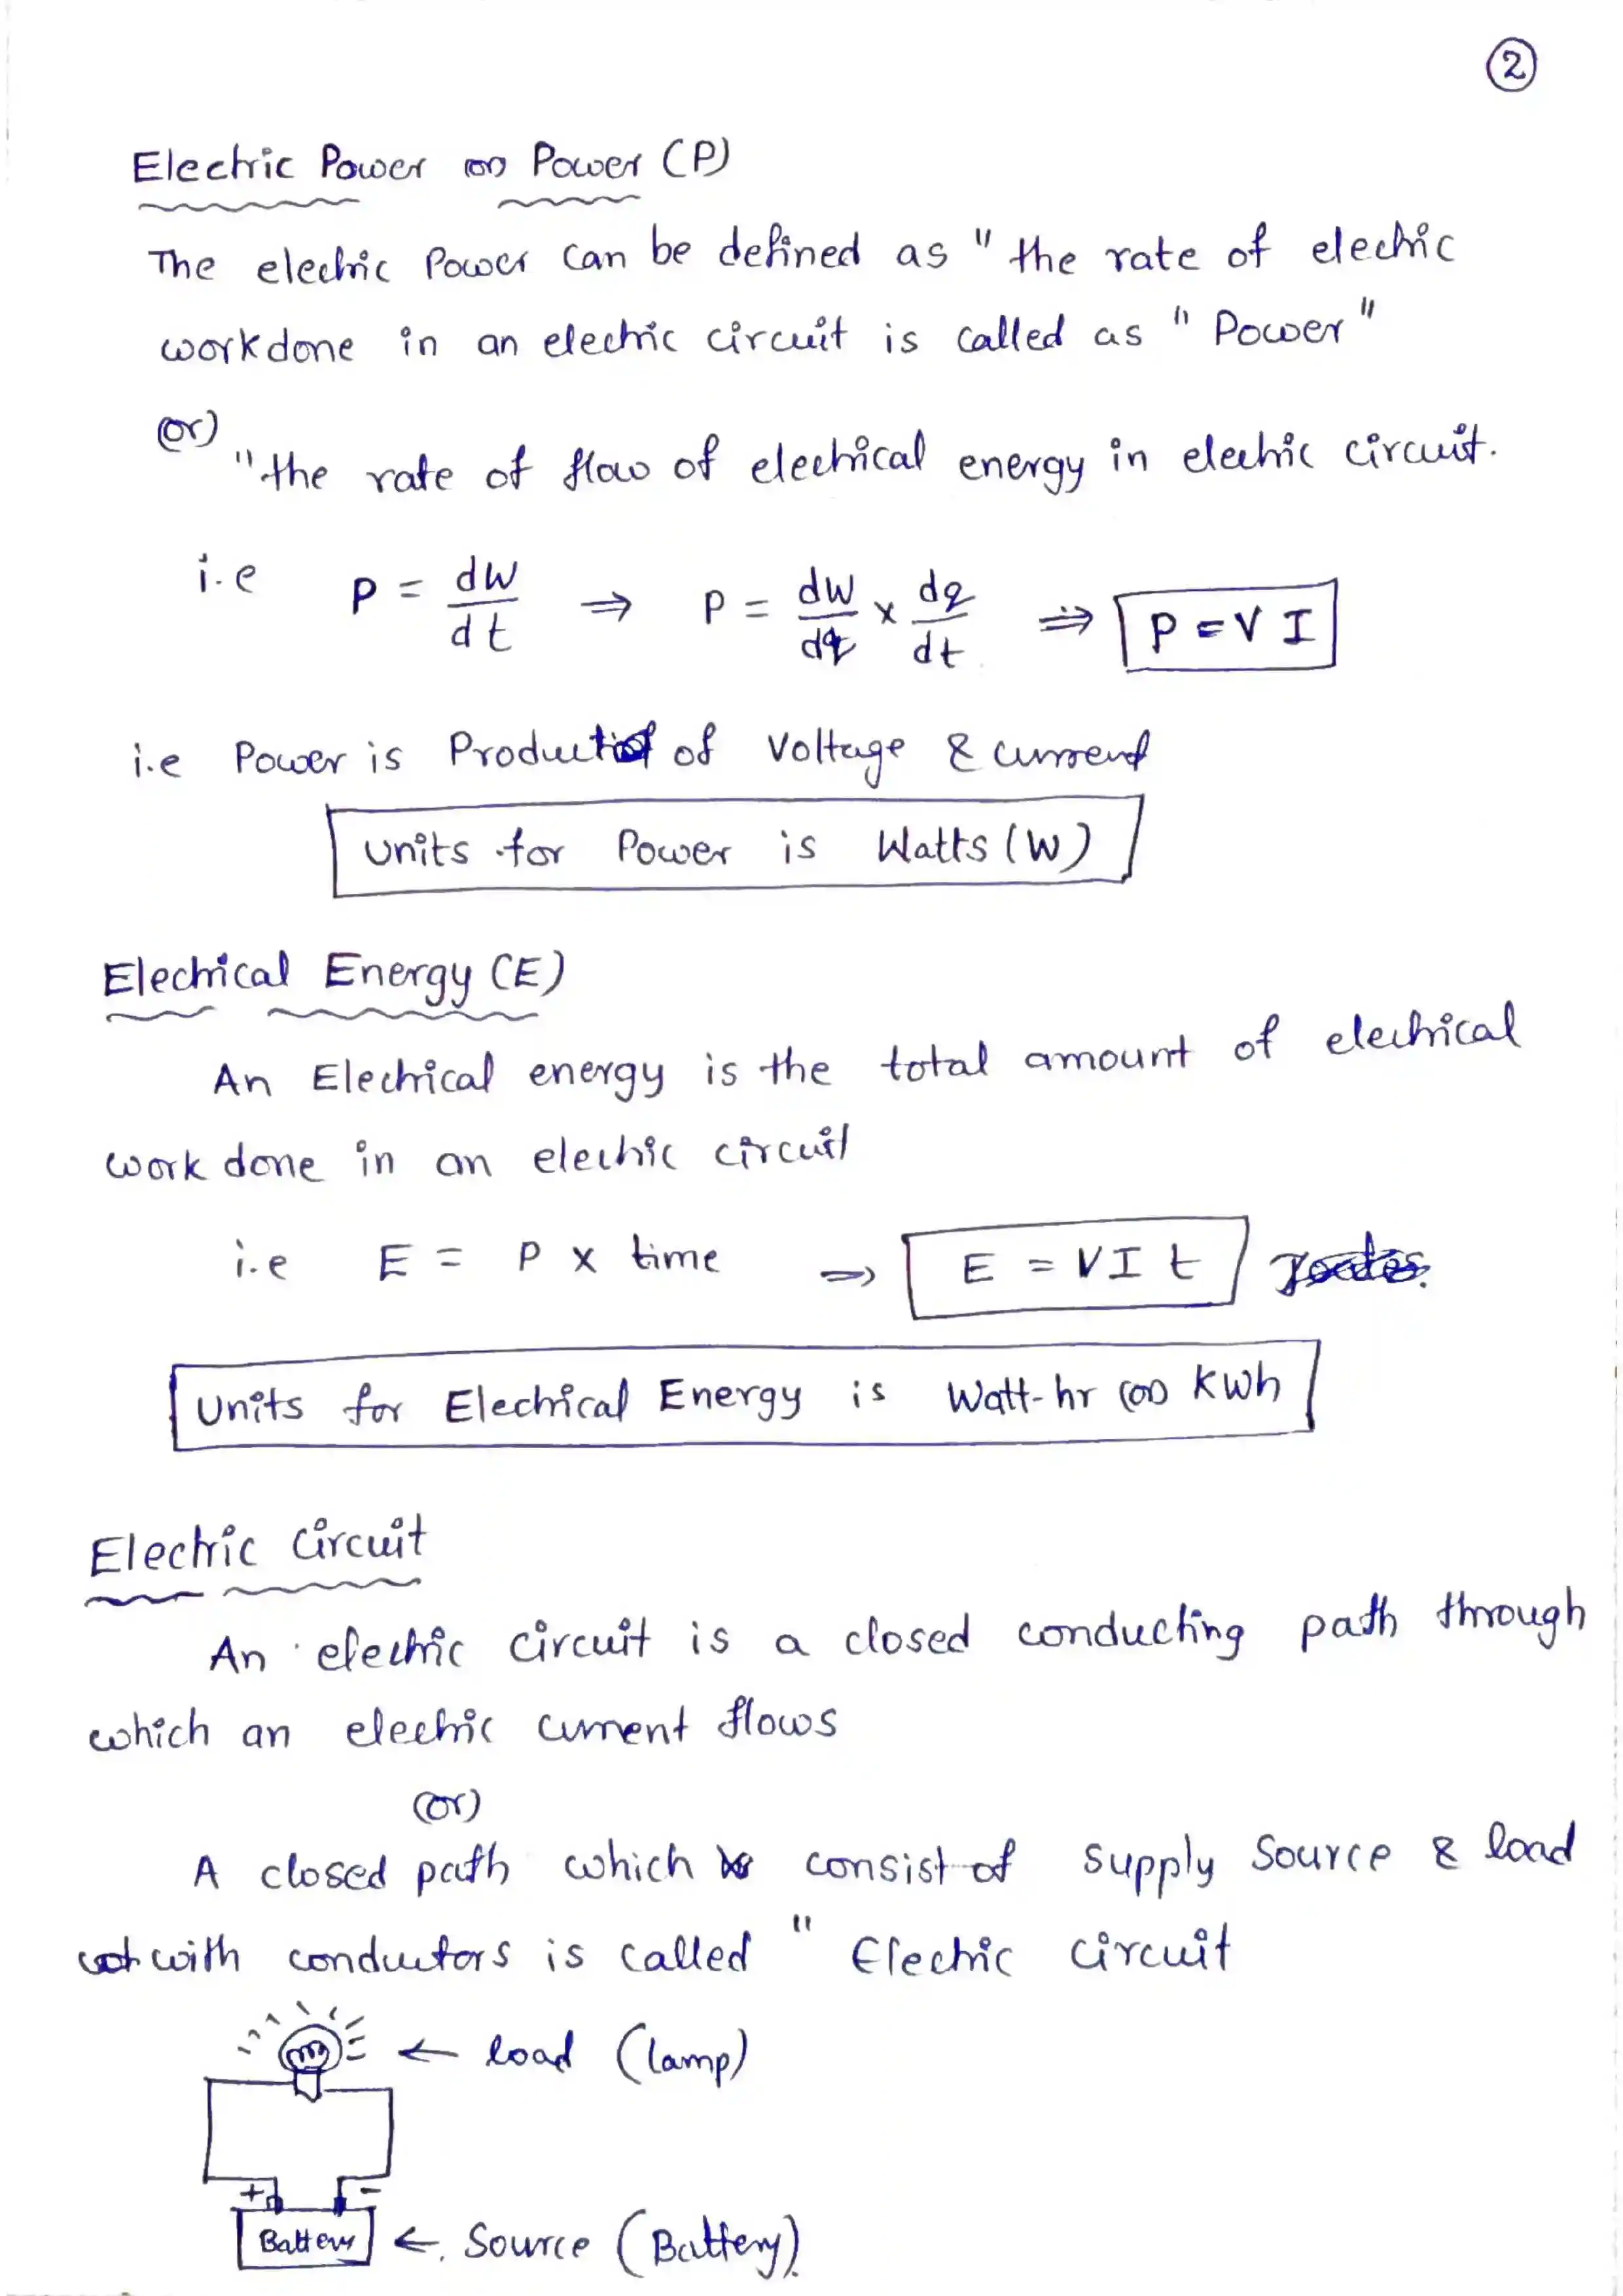 2
Electric Power (or) Power (P)
The electric Power can be defined as " the rate of electric
workdone in an electric circuit is called as " Power "
(or)
"the rate of flow of electrical energy in electric circuit.
i.e P = dW/dt ⇒ P = dW/dq × dq/dt ⇒ P = V I
i.e Power is Product of Voltage & current
Units for Power is Watts (W)
Electrical Energy (E)
An Electrical energy is the total amount of electrical
work done in an electric circuit
i.e E = P x time ⇒ E = VI t
Units for Electrical Energy is Watt-hr (or) kwh
Electric Circuit
An electric circuit is a closed conducting path through
which an electric current flows
(or)
A closed path which consist of supply Source & load
with conductors is called " Electric circuit
← load (lamp)
+ -
Battery ← Source (Battery)